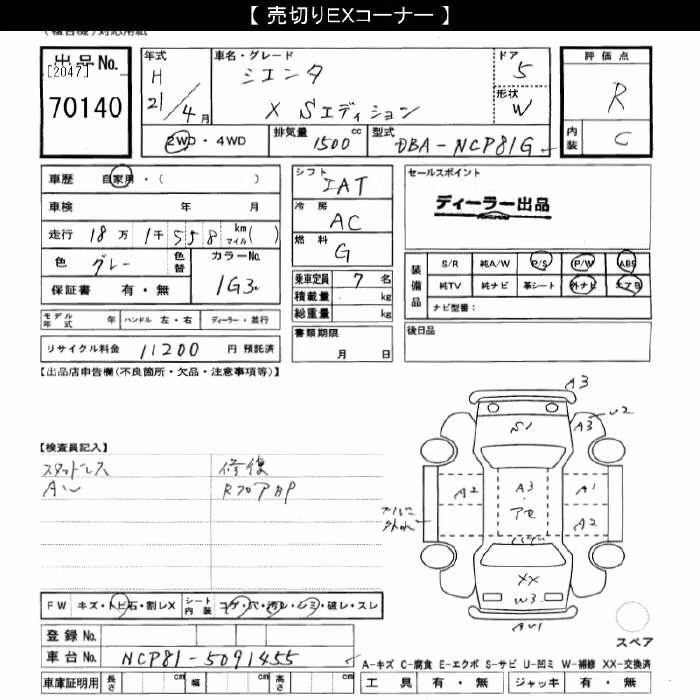 【 売切りEXコーナー 】
対応用紙
出品No.
[2047]
70140
年式
H
21/4月
車名・グレード
シエンタ
X Sエディション
ドア
5
形状
W
評価点
R
内装
C
2WD・4WD
排気量
1500 cc
型式
DBA-NCP81G
車歴 自家用・( )
車検 年 月
走行 18万 1千 558 km マイル( )
色 グレー
色替
カラーNo.
1G3
保証書 有・無
モデル年式 年 ハンドル 左・右 ディーラー・並行
リサイクル料金 11200 円 預託済
シフト
IAT
冷房
AC
燃料
G
乗車定員 7 名
積載量 kg
総重量 kg
書類期限
月 日
セールスポイント
ディーラー出品
装備品
S/R 純A/W P/S P/W ABS
純TV 純ナビ 革シート 外ナビ エアB
ナビ型番:
後日品
【出品店申告欄(不良箇所・欠品・注意事項等)】
【検査員記入】
スタッドレス
AW
修復
FW キズ・トビ石・割レX
シート内装 コゲ・穴・汚レ・シミ・破レ・スレ
登録No.
車台No. NCP81-5091455
車庫証明用 長さ cm 幅 cm 高さ cm
A3
U2
A3
S1
A2
A3
A1
A2
XX
W3
スペア
A-キズ C-腐食 E-エクボ S-サビ U-凹ミ W-補修 XX-交換済
工具 有・無 ジャッキ 有・無